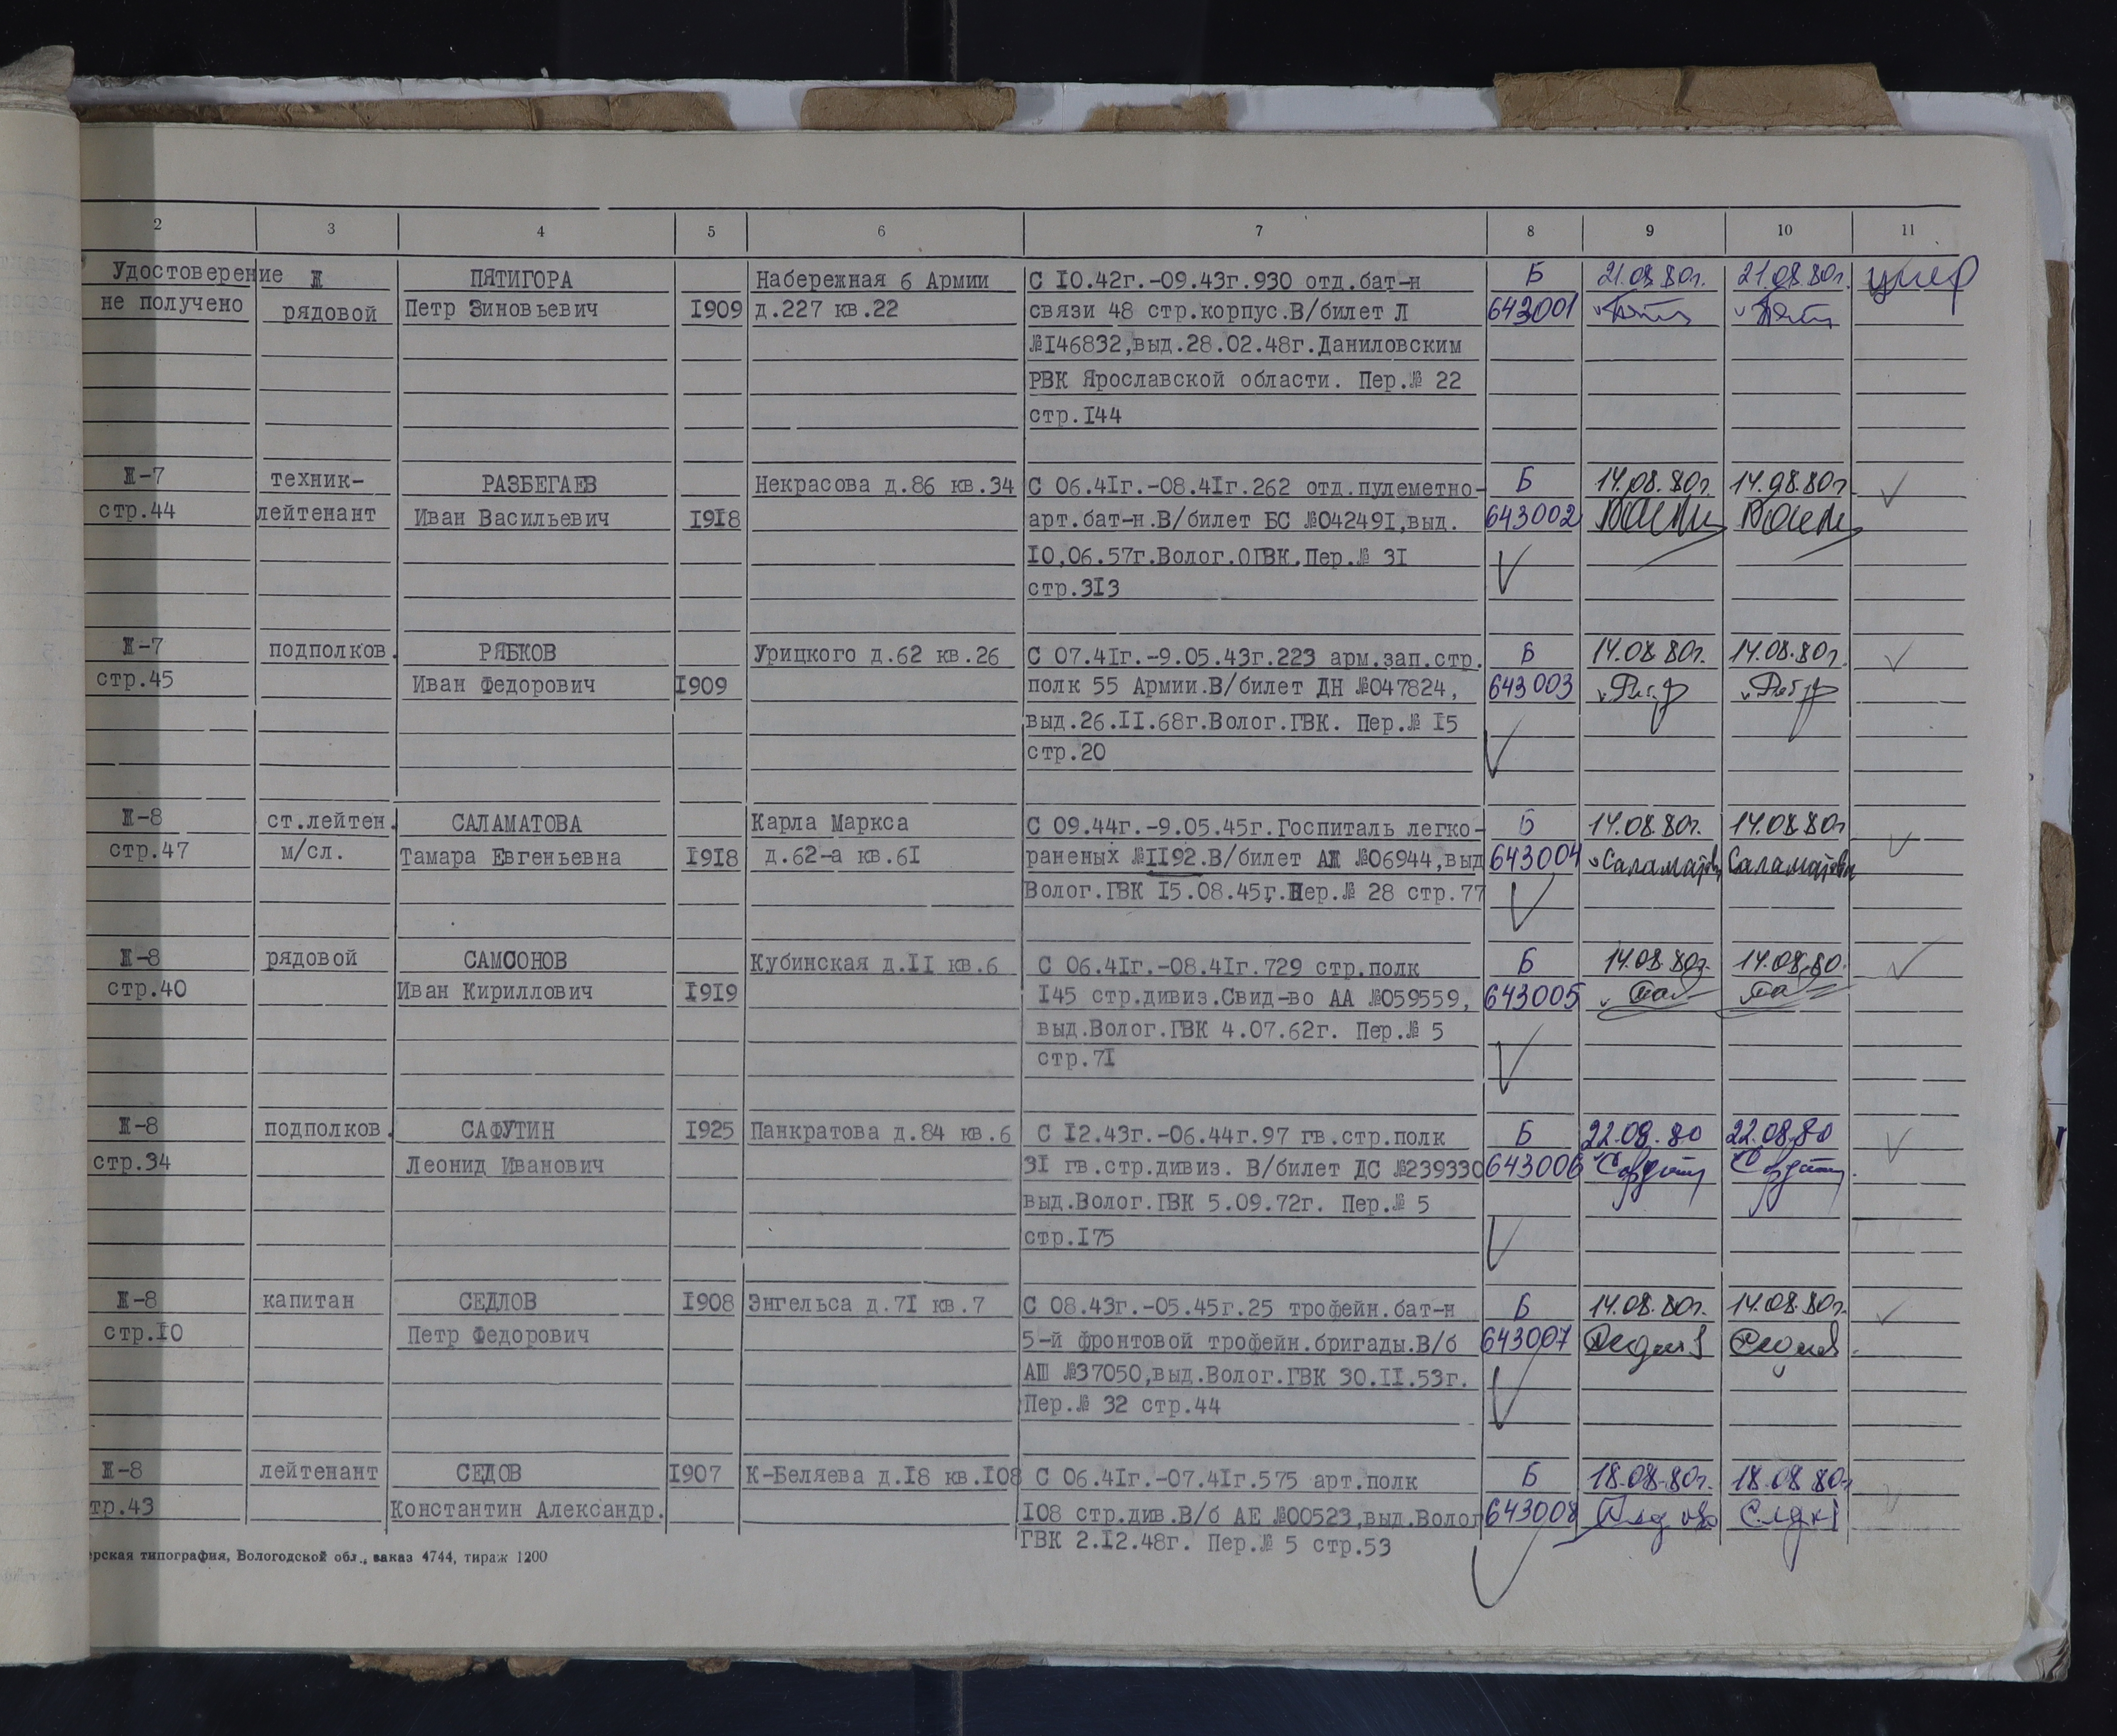 2 3 4 5 6 7 8 9 10 11
Удостоверение Ж ПЯТИГОРА Набережная 6 Армии С 10.42г.-09.43г.930 отд.бат-н Б 21.08.80г. 21.08.80г. умер
не получено рядовой Петр Зиновьевич 1909 д.227 кв.22 связи 48 стр.корпус.В/билет Л 643001
№146832,выд.28.02.48г.Даниловским
РВК Ярославской области. Пер.№ 22
стр.144
Ж-7 техник- РАЗБЕГАЕВ Некрасова д.86 кв.34 С 06.41г.-08.41г.262 отд.пулеметно- Б 14.08.80г. 14.08.80г.
стр.44 лейтенант Иван Васильевич 1918 арт.бат-н.В/билет БС №042491,выд. 643002
10,06.57г.Волог.ОГВК.Пер.№ 31
стр.313
Ж-7 подполков. РЯБКОВ Урицкого д.62 кв.26 С 07.41г.-9.05.43г.223 арм.зап.стр. Б 14.08.80г. 14.08.80г.
стр.45 Иван Федорович 1909 полк 55 Армии.В/билет ДН №047824, 643003
выд.26.11.68г.Волог.ГВК. Пер.№ 15
стр.20
Ж-8 ст.лейтен. САЛАМАТОВА Карла Маркса С 09.44г.-9.05.45г.Госпиталь легко- Б 14.08.80г. 14.08.80г
стр.47 м/сл. Тамара Евгеньевна 1918 д.62-а кв.61 раненых №1192.В/билет АЖ №06944,выд 643004 Саламатова Саламатова
Волог.ГВК 15.08.45г.Пер.№ 28 стр.77
Ж-8 рядовой САМСОНОВ Кубинская д.11 кв.6 С 06.41г.-08.41г.729 стр.полк Б 14.08.80г. 14.08.80.
стр.40 Иван Кириллович 1919 145 стр.дивиз.Свид-во АА №059559, 643005
выд.Волог.ГВК 4.07.62г. Пер.№ 5
стр.71
Ж-8 подполков. САФУТИН 1925 Панкратова д.84 кв.6 С 12.43г.-06.44г.97 гв.стр.полк Б 22.08.80 22.08.80
стр.34 Леонид Иванович 31 гв.стр.дивиз. В/билет ДС №239330 643006
выд.Волог.ГВК 5.09.72г. Пер.№ 5
стр.175
Ж-8 капитан СЕДЛОВ 1908 Энгельса д.71 кв.7 С 08.43г.-05.45г.25 трофейн.бат-н Б 14.08.80г. 14.08.80г.
стр.10 Петр Федорович 5-й фронтовой трофейн.бригады.В/б 643007
АШ №37050,выд.Волог.ГВК 30.11.53г.
Пер.№ 32 стр.44
Ж-8 лейтенант СЕДОВ 1907 К-Беляева д.18 кв.108 С 06.41г.-07.41г.575 арт.полк Б 18.08.80г. 18.08.80г
тр.43 Константин Александр. 108 стр.див.В/б АЕ №00523,выд.Волог 643008
ГВК 2.12.48г. Пер.№ 5 стр.53
ерская типография, Вологодской обл., заказ 4744, тираж 1200